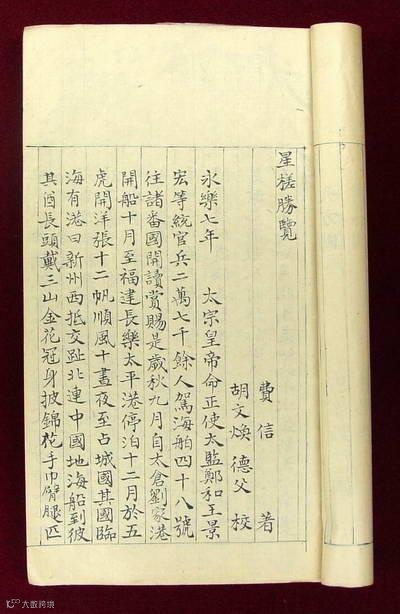 星槎勝覽
費信 著
胡文煥 德父 校
永樂七年 太宗皇帝命正使太監鄭和王景
宏等統官兵二萬七千餘人駕海舶四十八號
往諸番國開讀賞賜是歲秋九月自太倉劉家港
開船十月至福建長樂太平港停泊十二月於五
虎開洋張十二帆順風十晝夜至占城國其國臨
海有港曰新州西抵交趾北連中國地海船到彼
其酋長頭戴三山金花冠身披錦花手巾臂腿匹
大數跨境